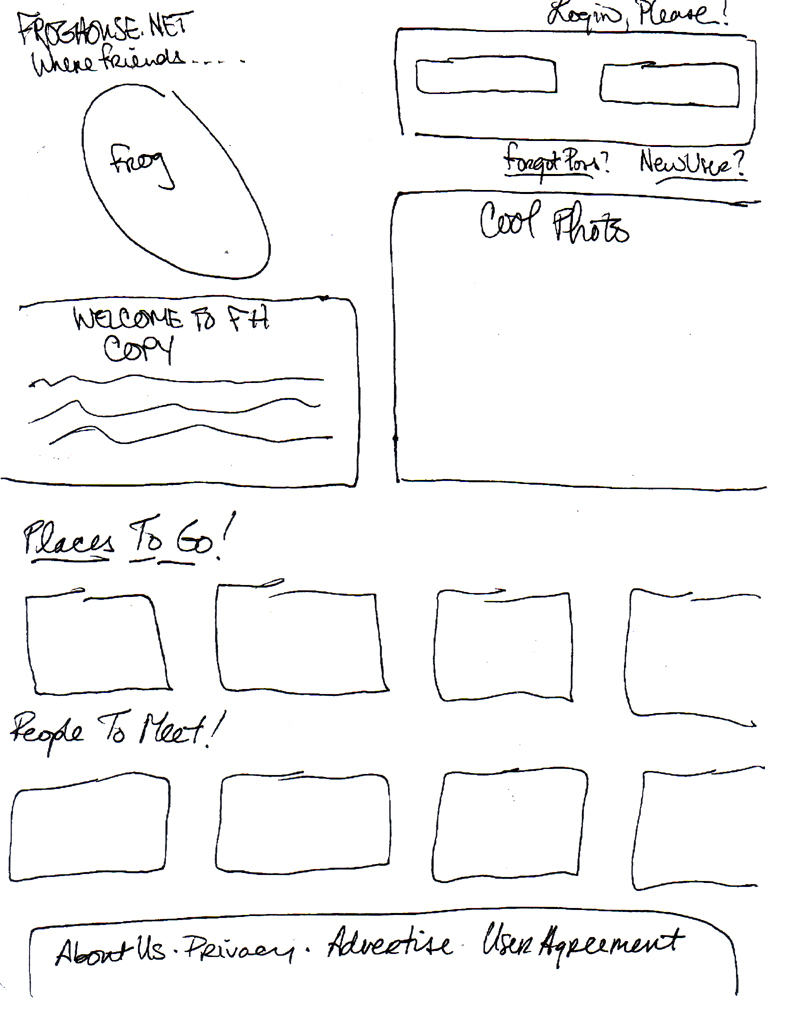 FROGHOUSE.NET
Where friends.....
Login, Please!
Frog
Forgot Pass? New User?
Cool Photo
WELCOME TO FH
COPY
Places To Go!
People To Meet!
About Us · Privacy · Advertise · User Agreement